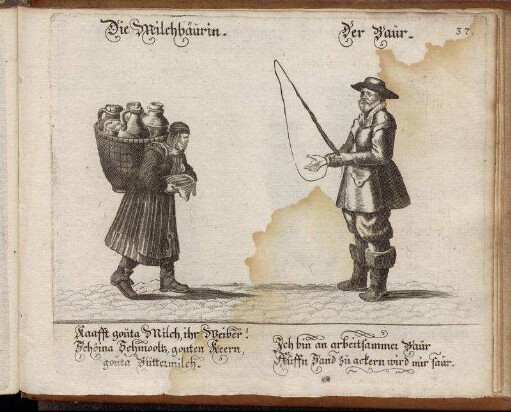 Die Milchbäurin.
Der Baur.
37.
Kaafft gouta Milch, ihr Weiber!
Schöina Schmooltz, gouten Keern,
gouta Buttermilch.
Ich bin an arbeitsammer Baur
Auffn Sand zu ackern wird mir saur.